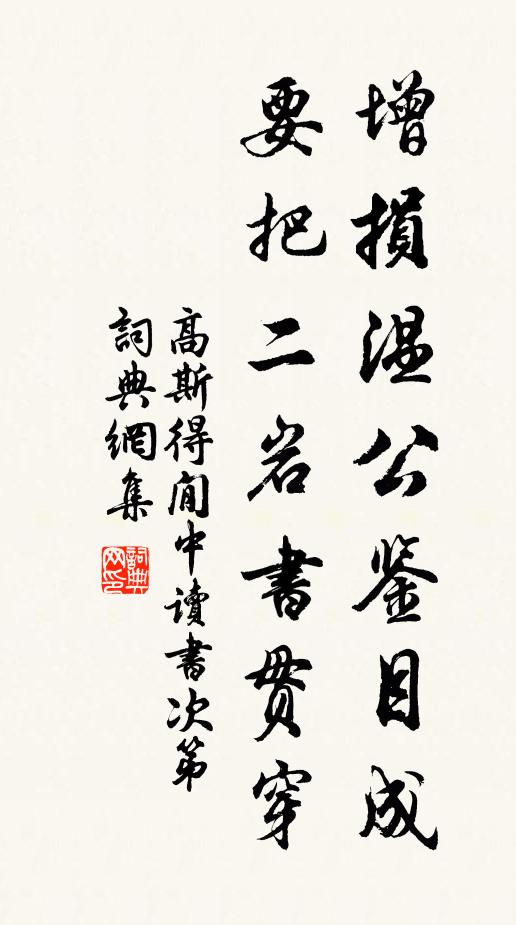 增損温公鉴目成
要把二岩書貫穿
高斯得閒中讀書次第
詞典網集
詞典网印